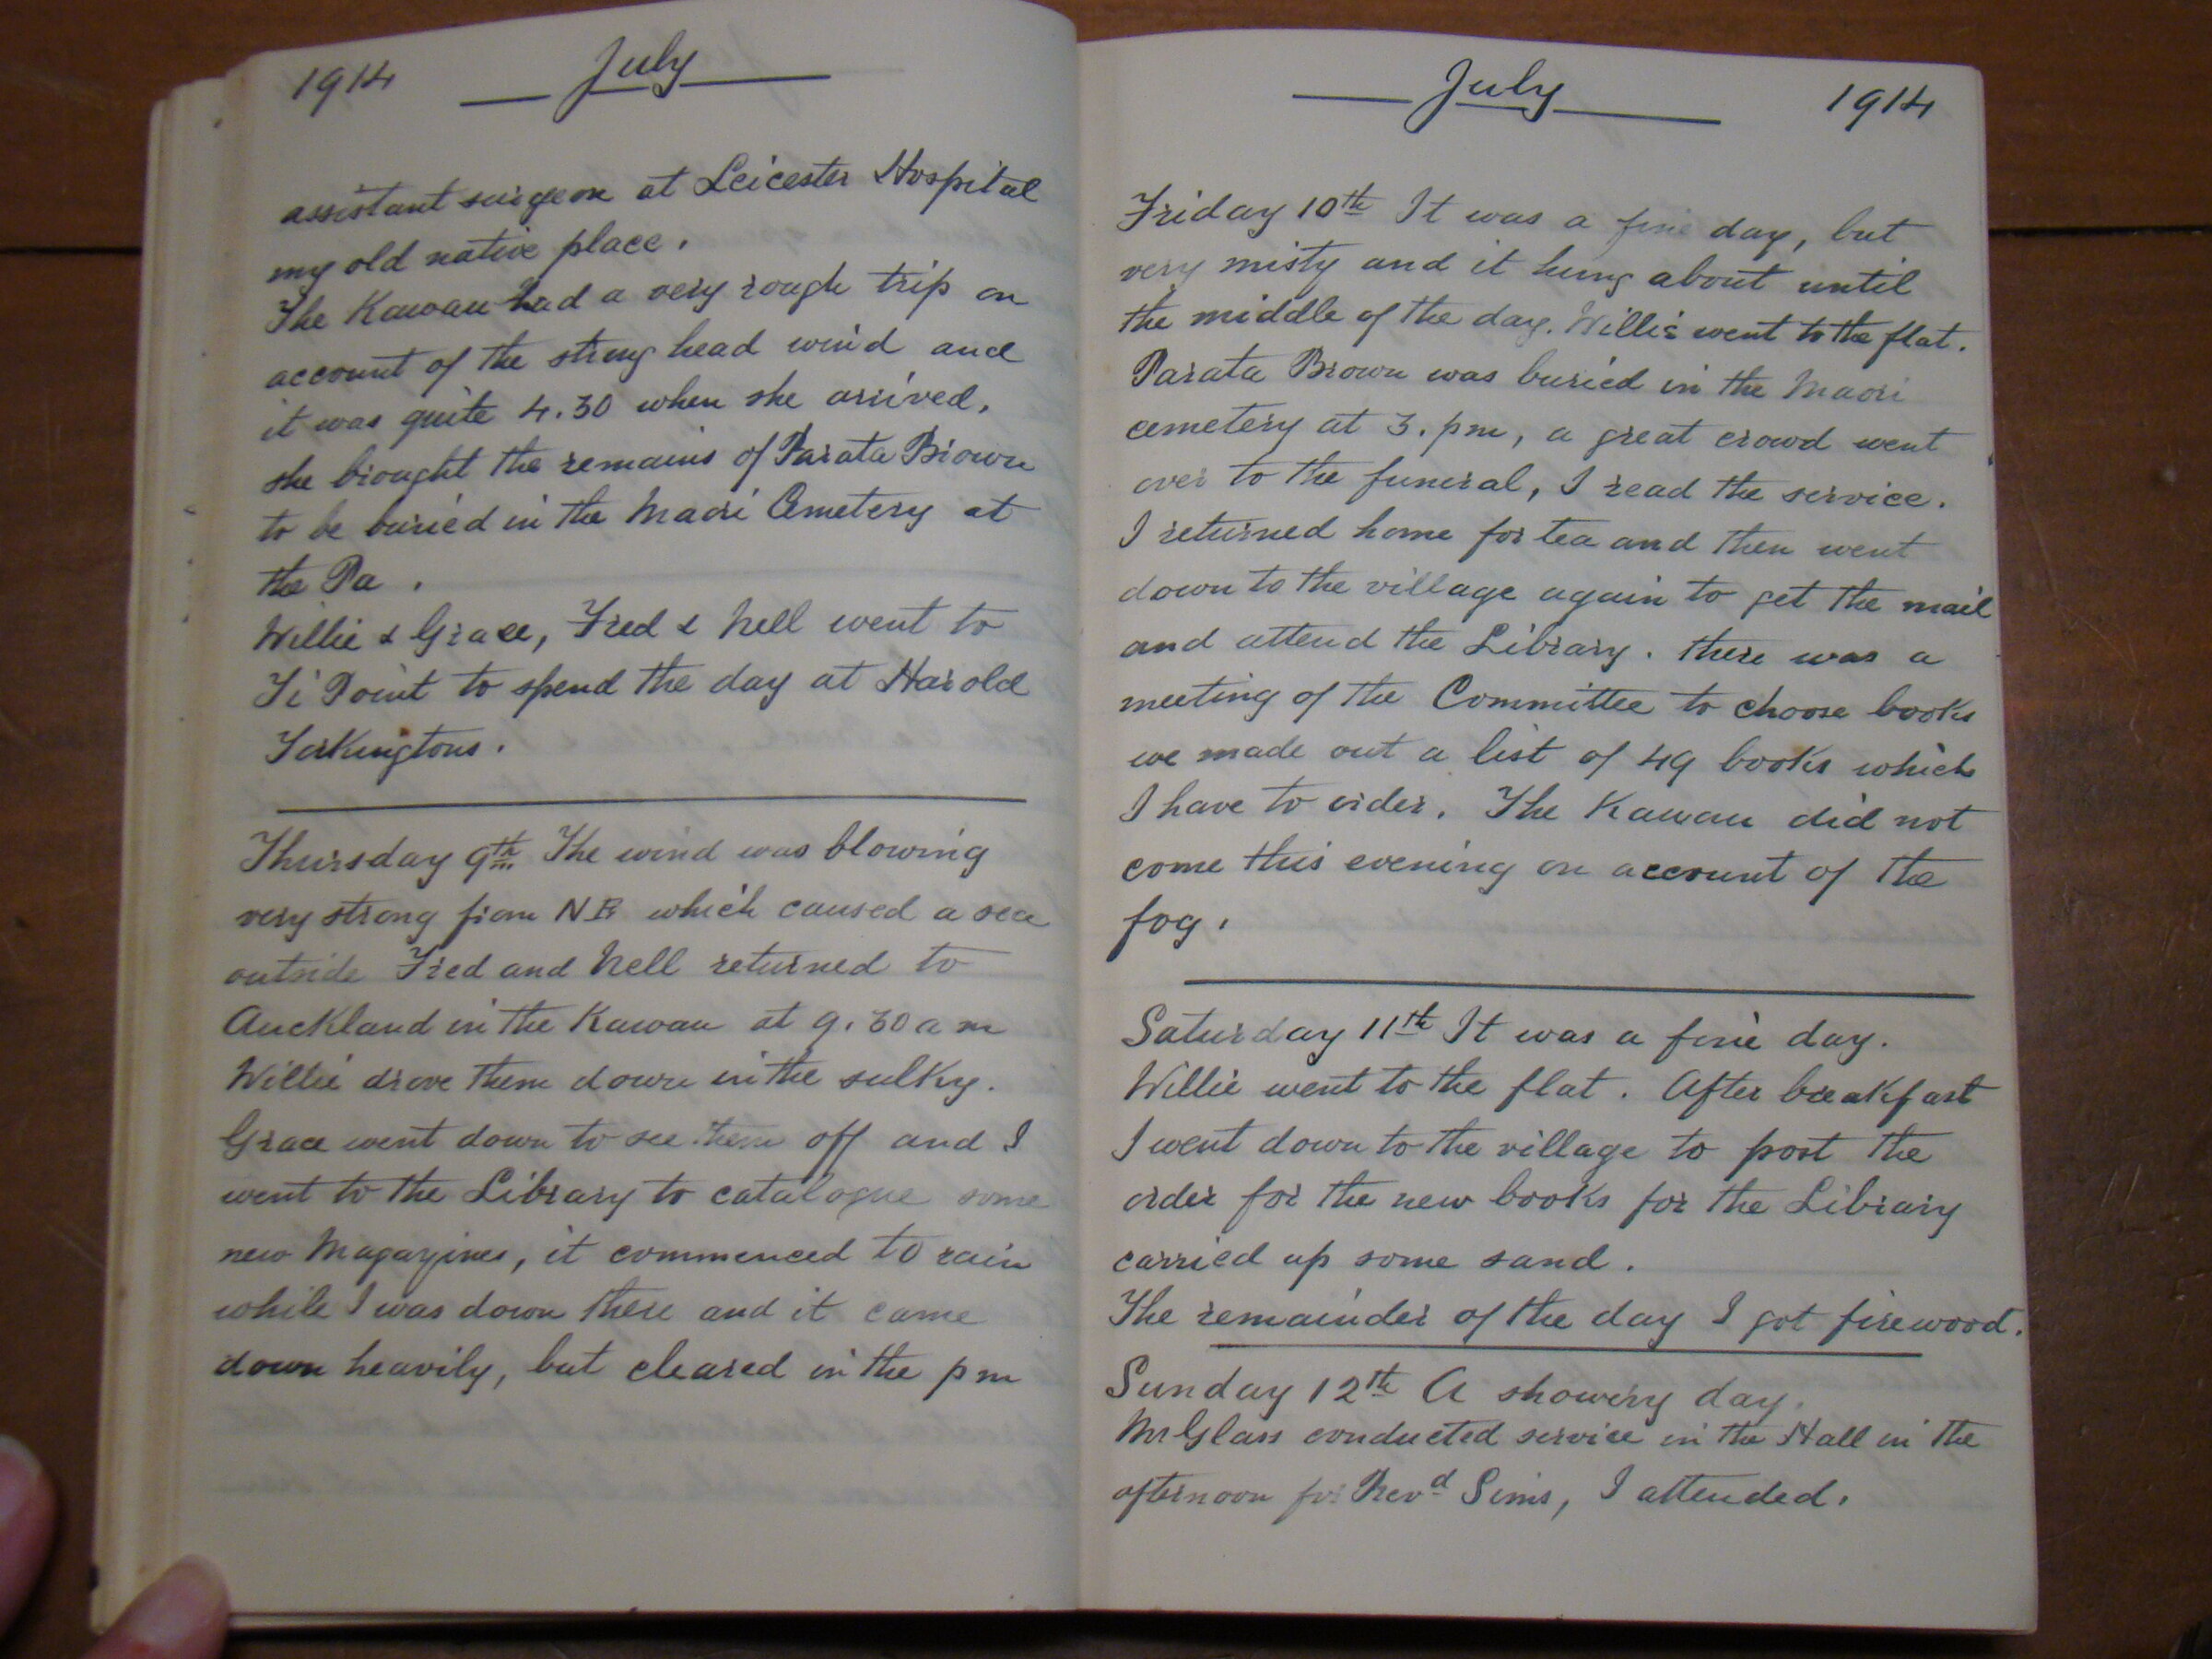 1914 July
assistant surgeon at Leicester Hospital
my old native place.
The Kawau had a very rough trip on
account of the strong head wind and
it was quite 4.30 when she arrived.
she brought the remains of Parata Brown
to be buried in the Maori Cemetery at
the Pa.
Willie & Grace, Fred & Nell went to
Ti Point to spend the day at Harold
Torkingtons.
Thursday 9th The wind was blowing
very strong from NE which caused a sea
outside Fred and Nell returned to
Auckland in the Kawau at 9.30 am
Willie drove them down in the sulky.
Grace went down to see them off and I
went to the Library to catalogue some
new Magazines, it commenced to rain
while I was down there and it came
down heavily, but cleared in the pm
July 1914
Friday 10th It was a fine day, but
very misty and it hung about until
the middle of the day. Willie went to the flat.
Parata Brown was buried in the Maori
cemetery at 3. pm, a great crowd went
over to the funeral, I read the service.
I returned home for tea and then went
down to the village again to get the mail
and attend the Library. there was a
meeting of the Committee to choose books
we made out a list of 49 books which
I have to order. The Kawau did not
come this evening on account of the
fog.
Saturday 11th It was a fine day.
Willie went to the flat. After breakfast
I went down to the village to post the
order for the new books for the Library
carried up some sand.
The remainder of the day I got firewood.
Sunday 12th A showery day.
Mr Glass conducted service in the Hall in the
afternoon for Revd Sims, I attended.